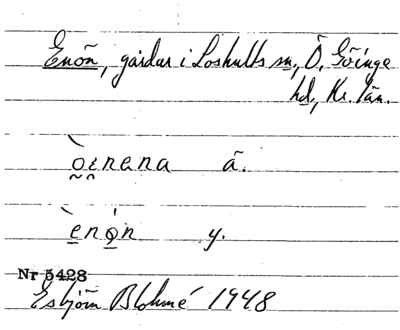 Enön, gårdar i Loshults sn, Ö. Göinge
hd, Kr. län.
ä.
y.
Nr 5428
Esbjörn Blohmé 1948